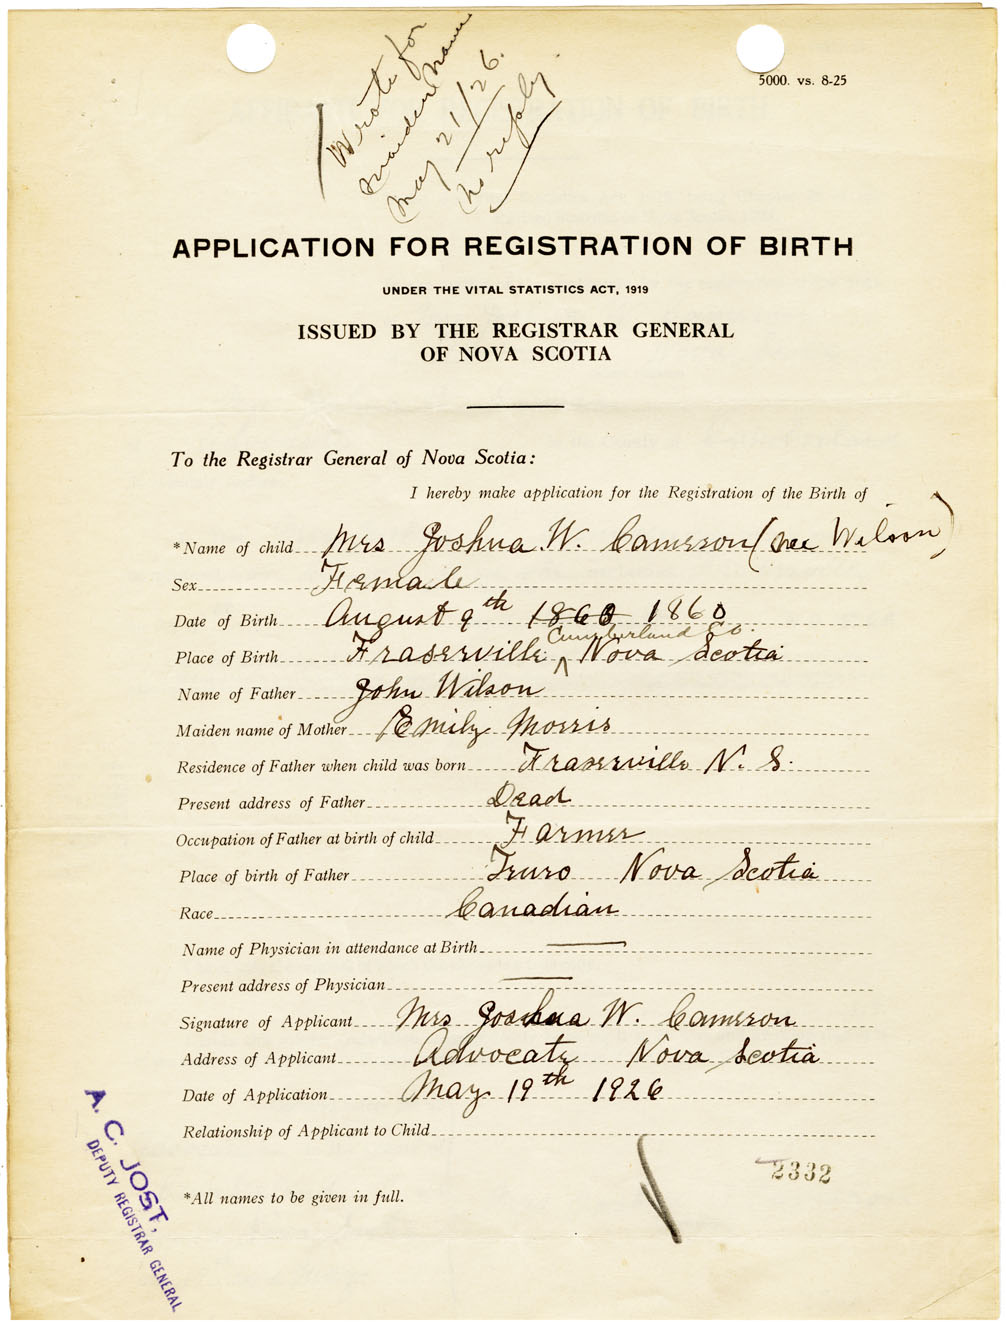 Wrote for
maiden name
May 21/26.
No reply
5000. vs. 8-25
APPLICATION FOR REGISTRATION OF BIRTH
UNDER THE VITAL STATISTICS ACT, 1919
ISSUED BY THE REGISTRAR GENERAL
OF NOVA SCOTIA
To the Registrar General of Nova Scotia:
I hereby make application for the Registration of the Birth of
*Name of child Mrs Joshua. W. Cameron (nee Wilson)
Sex Female
Date of Birth August 9th 1860 1860
Cumberland Co.
Place of Birth Fraserville Nova Scotia
Name of Father John Wilson
Maiden name of Mother Emily Morris
Residence of Father when child was born Fraserville N. S.
Present address of Father Dead
Occupation of Father at birth of child Farmer
Place of birth of Father Truro Nova Scotia
Race Canadian
Name of Physician in attendance at Birth
Present address of Physician
Signature of Applicant Mrs Joshua W. Cameron
Address of Applicant Advocate Nova Scotia
Date of Application May 19th 1926
Relationship of Applicant to Child
2332
*All names to be given in full.
A. C. JOST,
DEPUTY REGISTRAR GENERAL